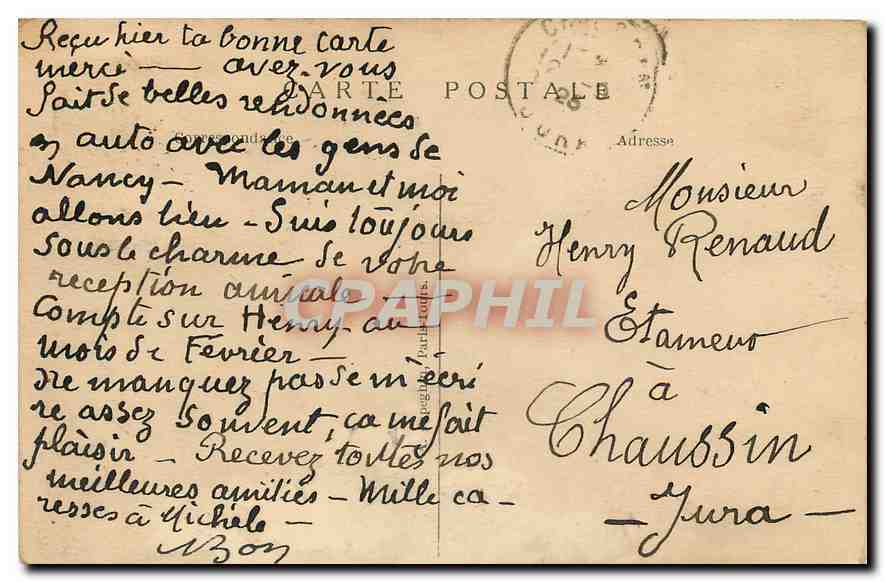 Reçu hier ta bonne carte
merci — avez-vous
CARTE POSTALE
fait de belles randonnées
Correspondance
en auto avec les gens de
Adresse
Nancy - Maman et moi
allons bien - Suis toujours
sous le charme de votre
réception amicale —
Compte sur Henry au
mois de Février —
Ne manquez pas de m'écri
re assez souvent, ça me fait
plaisir — Recevez toutes nos
meilleures amitiés - Mille ca-
resses à Michèle -
Monsieur
Henry Renaud
Etameur
à
Chaussin
- Jura -
Paris Tours.
CPAPHIL